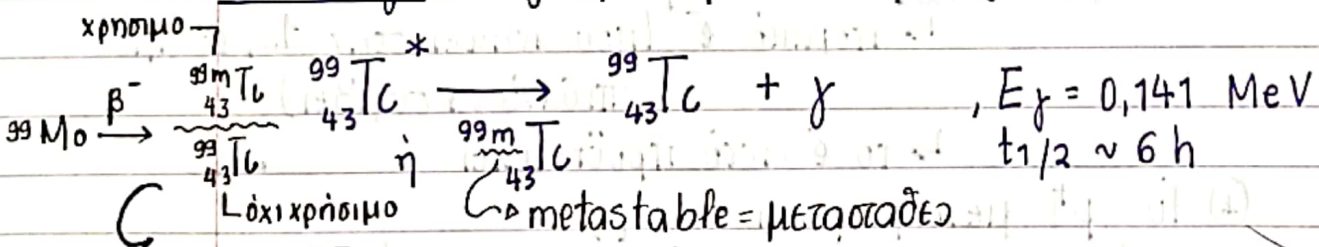 χρησιμο
⁹⁹Mo β⁻→ ⁹⁹ᵐ₄₃Tc / ⁹⁹₄₃Tc ⁹⁹₄₃Tc* ή ⁹⁹ᵐ₄₃Tc → ⁹⁹₄₃Tc + γ , Eγ = 0,141 MeV
t1/2 ~ 6 h
όχι χρήσιμο
metastable = μετασταθες